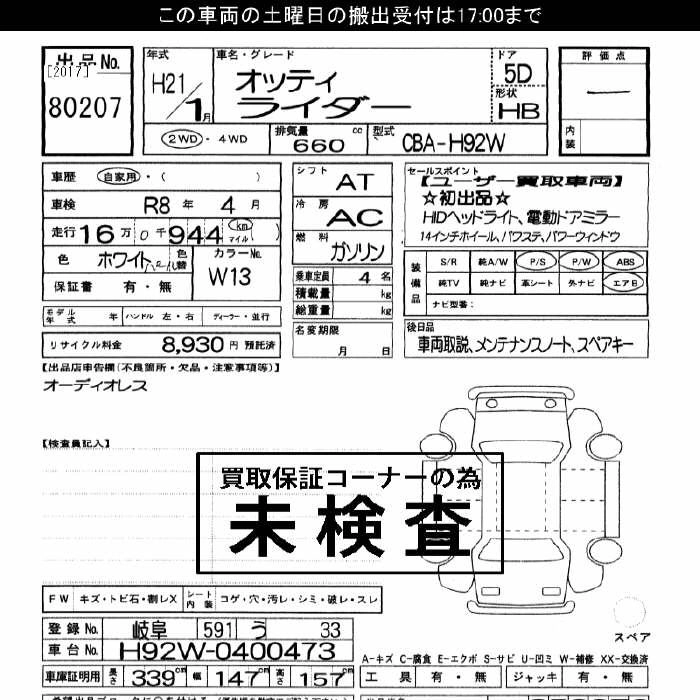 この車両の土曜日の搬出受付は17:00まで
出品No.
[2017]
80207
年式
H21/1月
車名・グレード
オッティ
ライダー
ドア
5D
形状
HB
評価点
ー
内装
2WD・4WD
排気量 660 cc
型式 CBA-H92W
車歴 自家用・( )
車検 R8 年 4 月
走行 16万0千944 km マイル
色 ホワイト2C 色替
カラーNo.
W13
保証書 有・無
シフト
AT
冷房
AC
燃料
ガソリン
乗車定員 4 名
積載量 kg
総重量 kg
セールスポイント
【ユーザー買取車両】
☆初出品☆
HIDヘッドライト、電動ドアミラー
14インチホイール、パワステ、パワーウィンドウ
装備品
S/R 純A/W P/S P/W ABS
純TV 純ナビ 革シート 外ナビ エアB
ナビ型番:
モデル年式 年 ハンドル 左・右 ディーラー・並行
名変期限
月 日
後日品
車両取説、メンテナンスノート、スペアキー
リサイクル料金 8,930 円 預託済
【出品店申告欄(不良箇所・欠品・注意事項等)】
オーディオレス
【検査員記入】
買取保証コーナーの為
未検査
FW キズ・トビ石・割レX シート内装 コゲ・穴・汚レ・シミ・破レ・スレ
登録No. 岐阜 591 う 33
車台No. H92W-0400473
車庫証明用 長さ 339 cm 幅 147 cm 高さ 157 cm
スペア
A-キズ C-腐食 E-エクボ S-サビ U-凹ミ W-補修 XX-交換済
工具 有・無 ジャッキ 有・無